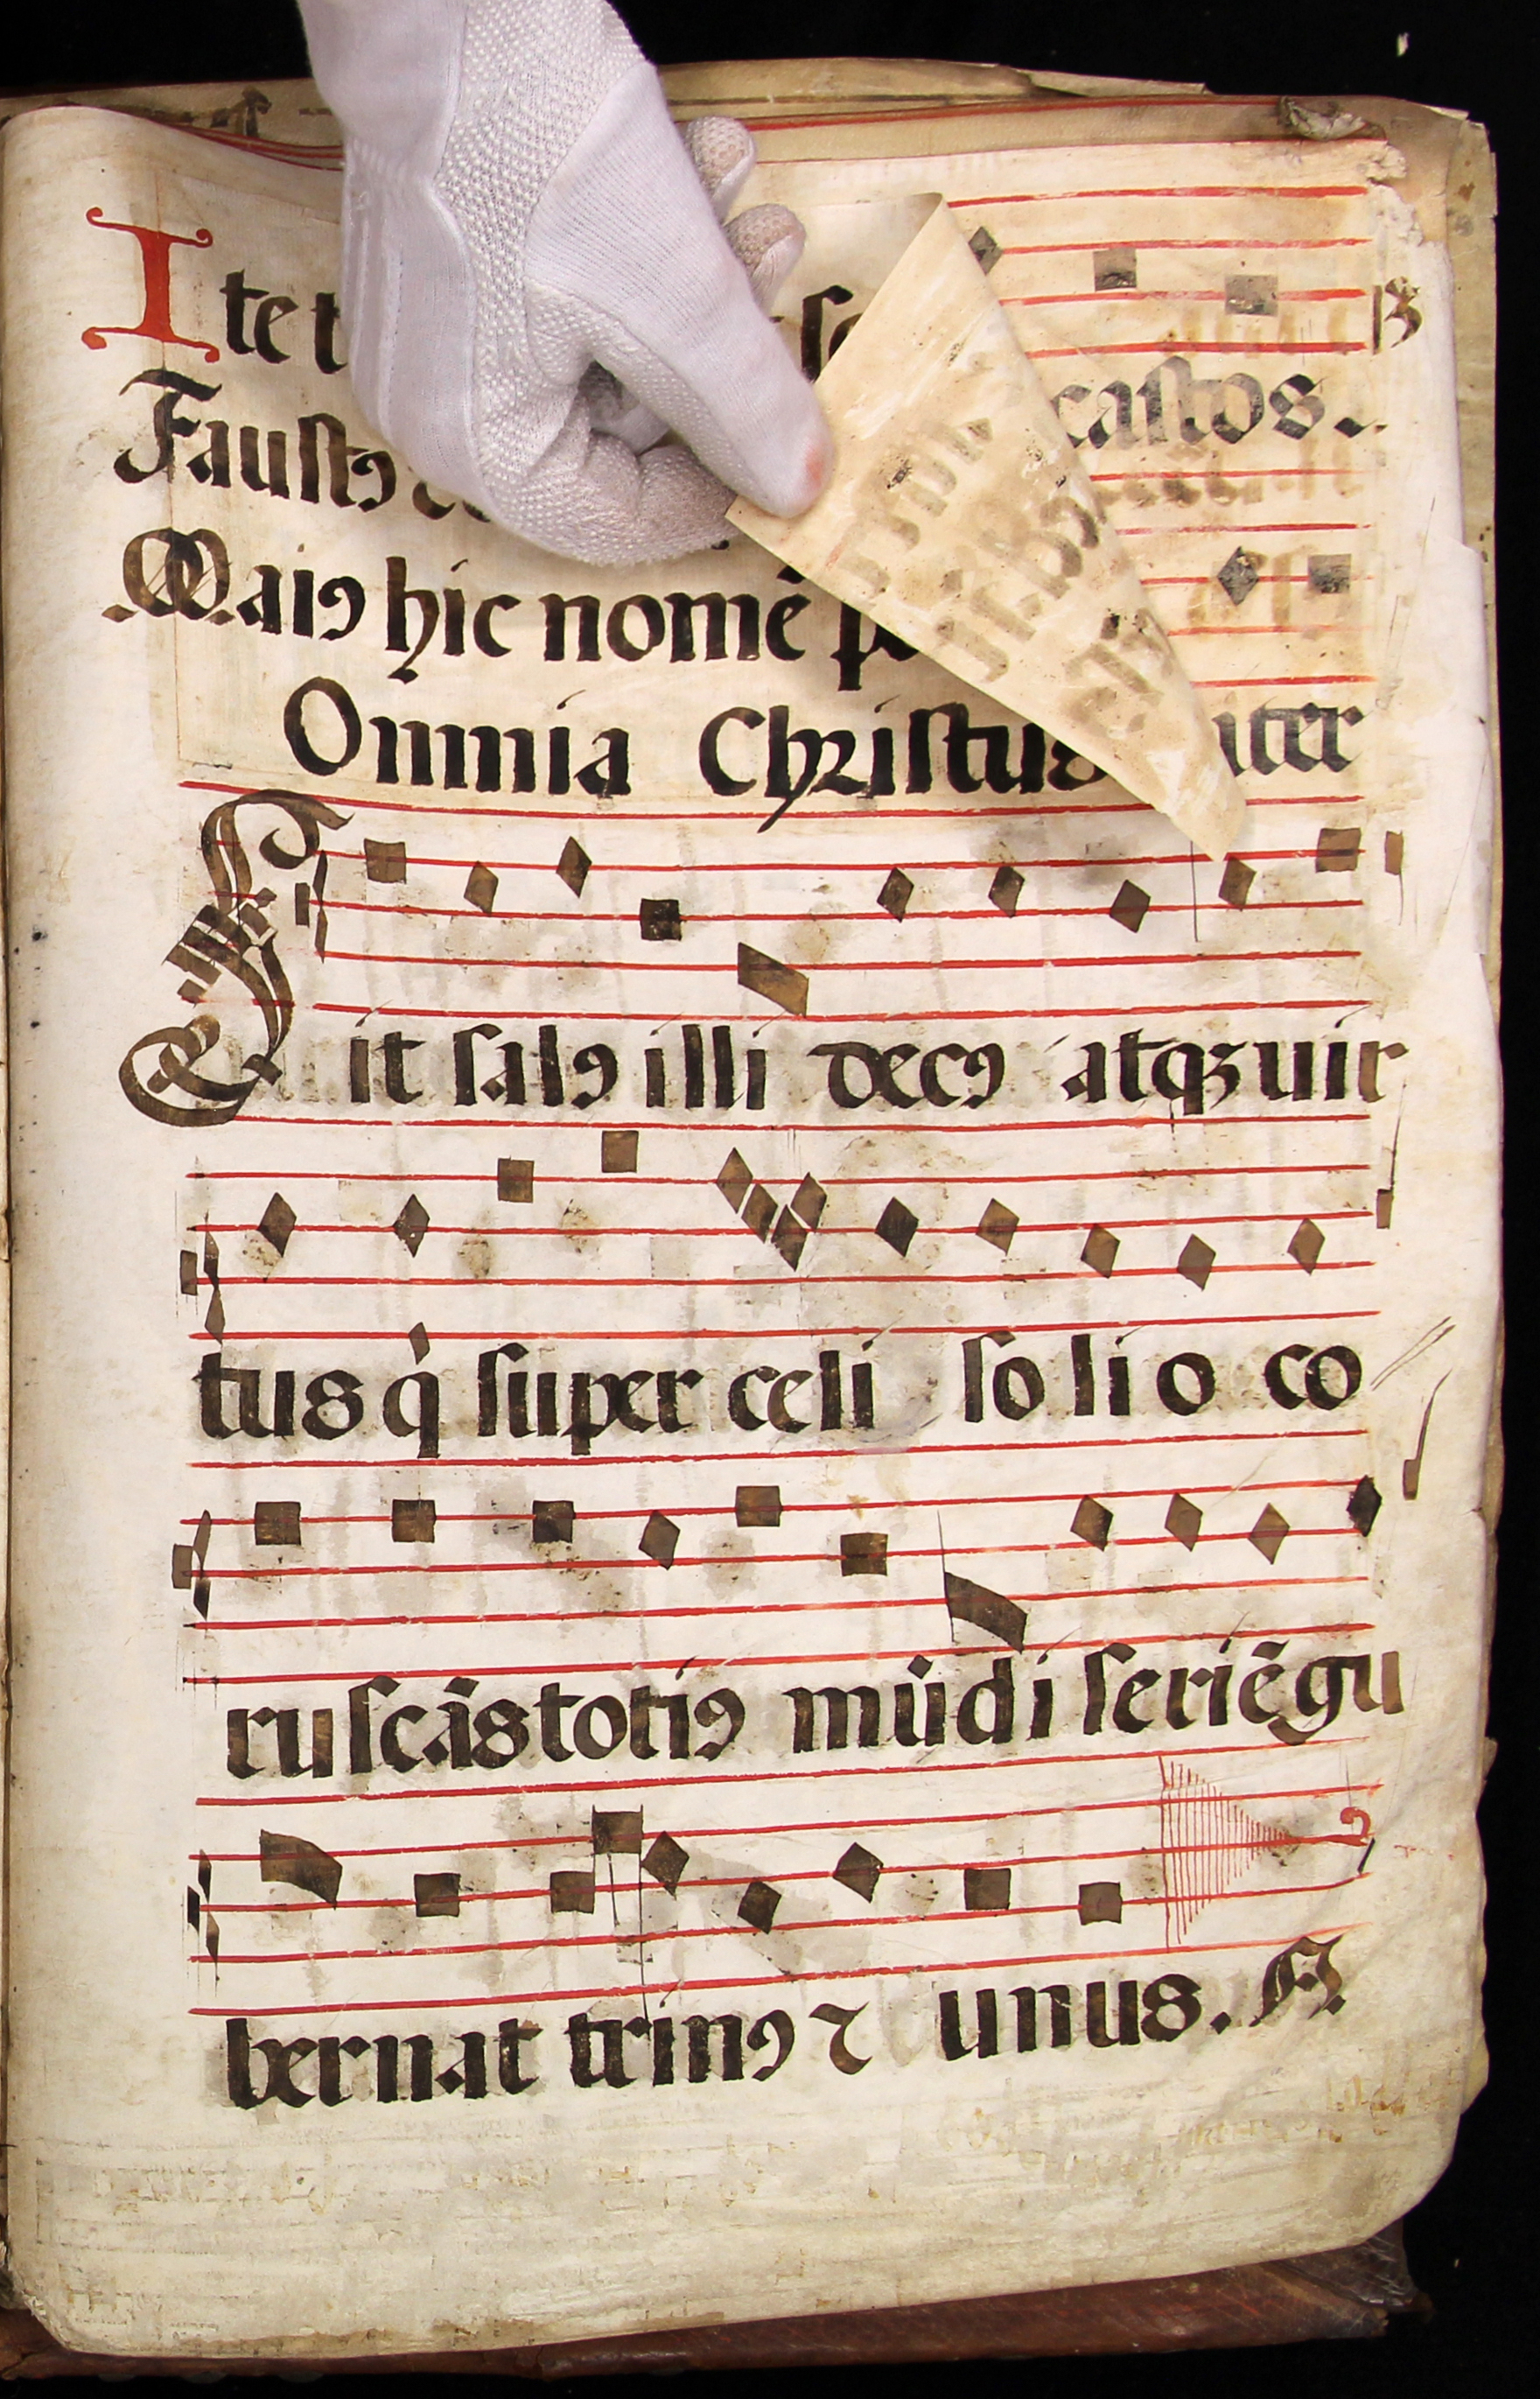 Ite t
castos.
Faustꝯ
Maiꝯ hic nomē
Omnia Christus iter
Sit salꝯ illi decꝯ atqꝫ uir
tus q̇ super celi solio co
ruscās totiꝯ mūdi seriē gu
bernat trinꝯ ⁊ unus. A